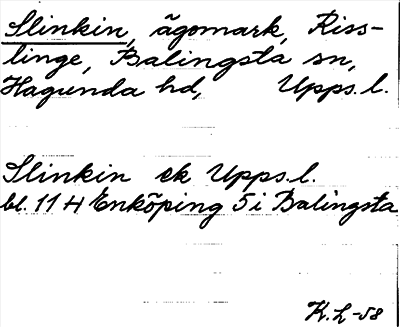 Slinkin, ägomark, Riss-
linge, Balingsta sn,
Hagunda hd, Upps. l.
Slinkin ek Upps. l.
bl. 11 H Enköping 5 i Balingsta
K. L -58